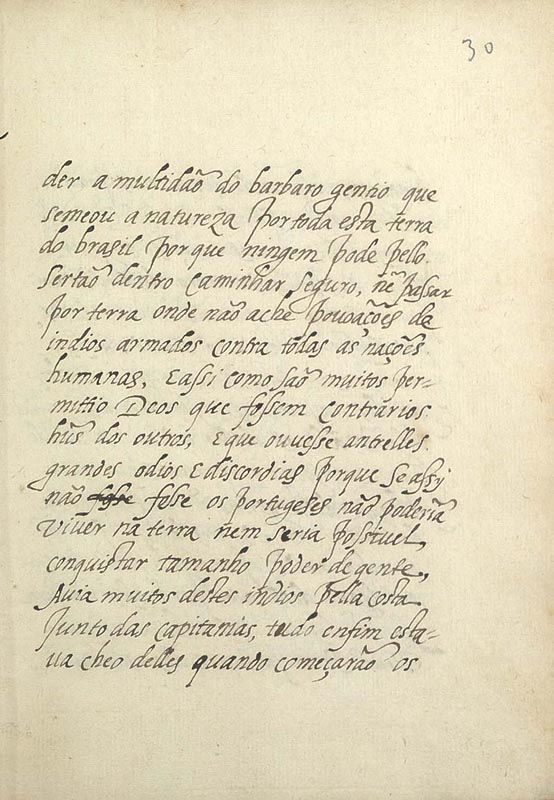 30
der a multidão do barbaro gentio que
semeou a natureza por toda esta terra
do brasil por que ningem pode pello
Sertão dentro caminhar seguro, nẽ passar
por terra onde não ache pouoações de
indios armados contra todas as nações
humanas, E assi como são muitos per=
mittio Deos que fossem contrarios
hũs dos outros, E que ouuesse antrelles
grandes odios E discordias porque se assy
não fosse fosse os portugeses não poderiã
viuer na terra nem seria possiuel
conquistar tamanho poder de gente,
Auia muitos destes indios pella costa
Junto das capitanias, tudo enfim esta=
ua cheo delles quando começarão os